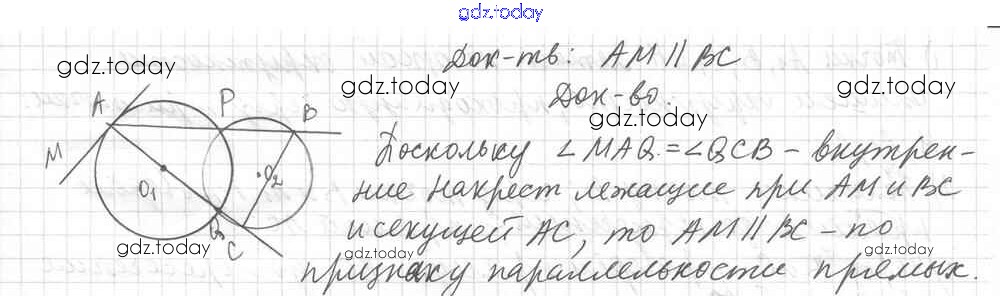 gdz.today
Док-ть: AM || BC
gdz.today
Док-во.
gdz.today
gdz.today
gdz.today
A P B
M
O₁
O₂
Q
C
Поскольку ∠MAQ = ∠QCB – внутрен-
ние накрест лежащие при AM и BC
и секущей AC, то AM || BC – по
признаку параллельности прямых.
gdz.today
gdz.today
gdz.today
gdz.today
gdz.today